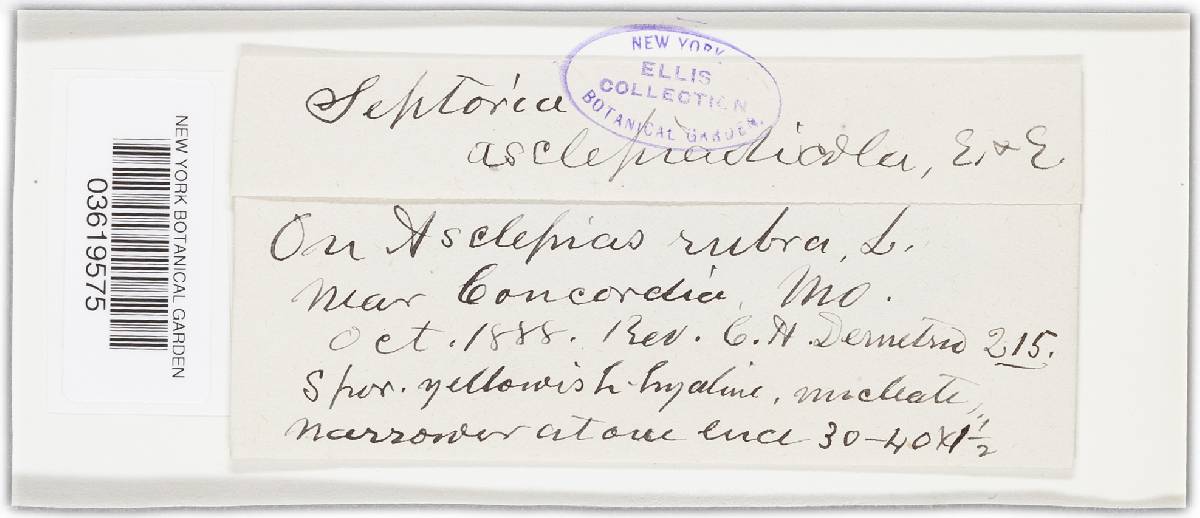 NEW YORK BOTANICAL GARDEN
03619575
NEW YORK
ELLIS
COLLECTION
BOTANICAL GARDEN.
Septoria
asclepiadicola, E. & E.
On Asclepias rubra, L.
near Concordia, Mo.
Oct. 1888. Rev. C. H. Demetrio 215.
Spor. yellowish-hyaline, nucleate,
narrower at one end 30-40 x 1½